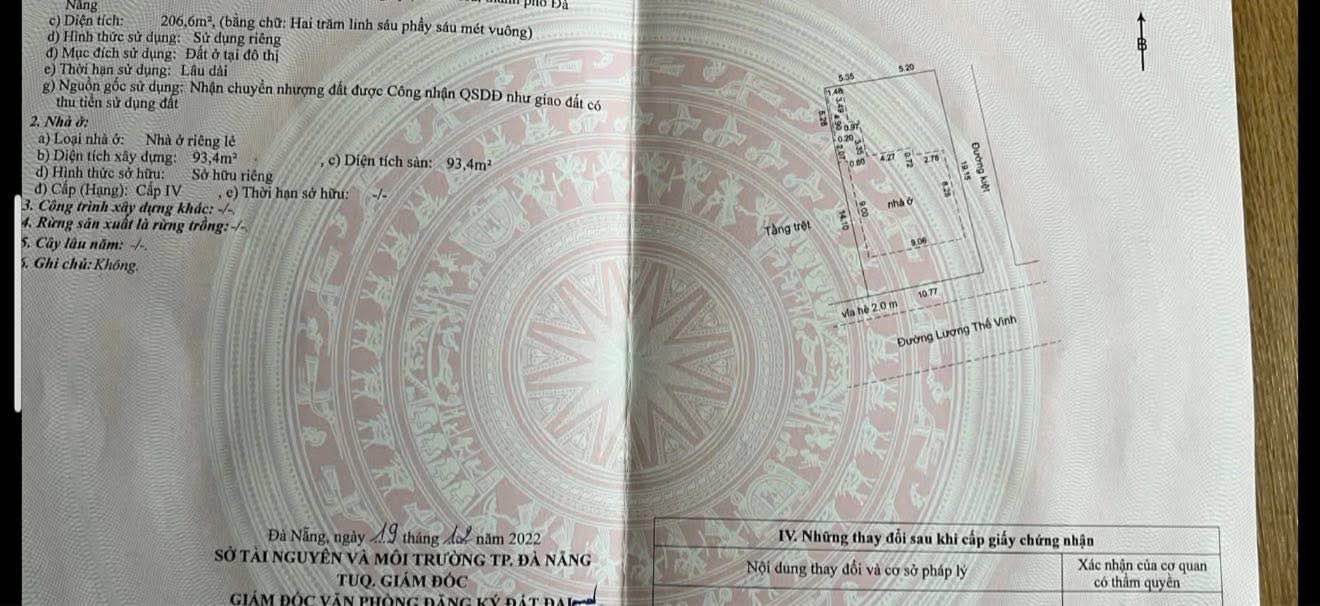 Nẵng
phố Đà
c) Diện tích: 206,6m², (bằng chữ: Hai trăm linh sáu phẩy sáu mét vuông)
d) Hình thức sử dụng: Sử dụng riêng
đ) Mục đích sử dụng: Đất ở tại đô thị
e) Thời hạn sử dụng: Lâu dài
g) Nguồn gốc sử dụng: Nhận chuyển nhượng đất được Công nhận QSDĐ như giao đất có
thu tiền sử dụng đất
2. Nhà ở:
a) Loại nhà ở: Nhà ở riêng lẻ
b) Diện tích xây dựng: 93,4m² , c) Diện tích sàn: 93,4m²
d) Hình thức sở hữu: Sở hữu riêng
đ) Cấp (Hạng): Cấp IV , e) Thời hạn sở hữu: -/-
3. Công trình xây dựng khác: -/-.
4. Rừng sản xuất là rừng trồng: -/-.
5. Cây lâu năm: -/-.
6. Ghi chú: Không.
Đà Nẵng, ngày 19 tháng 12 năm 2022
SỞ TÀI NGUYÊN VÀ MÔI TRƯỜNG TP. ĐÀ NẴNG
TUQ. GIÁM ĐỐC
GIÁM ĐỐC VĂN PHÒNG ĐĂNG KÝ ĐẤT ĐAI
B
5.35
5.20
1.48
3.49
5.28
4.90
0.97
0.20
3.35
2.07
0.80
4.27
0.72
2.78
8.28
19.15
Đường kiệt
nhà ở
9.00
14.10
Tầng trệt
9.06
10.77
vỉa hè 2.0 m
Đường Lương Thế Vinh
IV. Những thay đổi sau khi cấp giấy chứng nhận
Nội dung thay đổi và cơ sở pháp lý
Xác nhận của cơ quan
có thẩm quyền